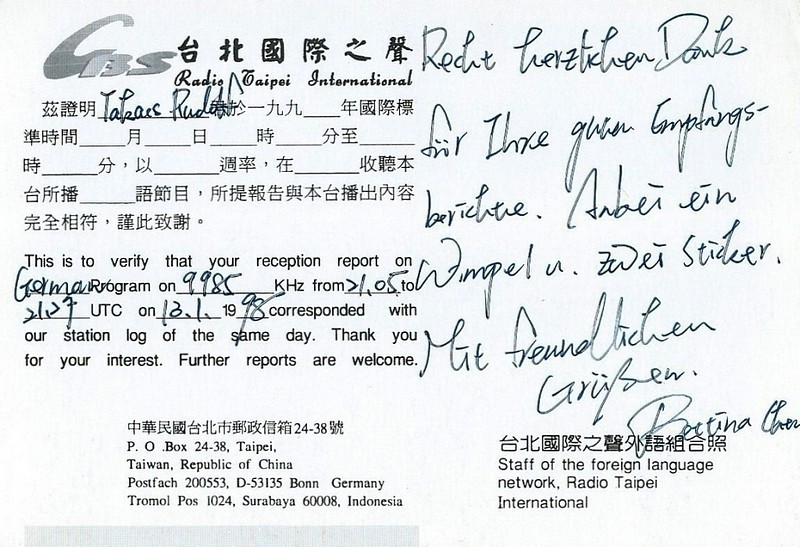 CBS
台北國際之聲
Radio Taipei International
茲證明 於一九九___年國際標
準時間____月____日____時____分至____
時_____分，以_____週率，在_____收聽本
台所播_____語節目，所提報告與本台播出內容
完全相符，謹此致謝。
This is to verify that your reception report on
German Program on 9985 KHz from 21.05 to
21.27 UTC on 13.1. 1998 corresponded with
our station log of the same day. Thank you
for your interest. Further reports are welcome.
中華民國台北市郵政信箱24-38號
P. O .Box 24-38, Taipei,
Taiwan, Republic of China
Postfach 200553, D-53135 Bonn Germany
Tromol Pos 1024, Surabaya 60008, Indonesia
Recht herzlichen Dank
für Ihre guten Empfangs-
berichte. Anbei ein
Wimpel u. zwei Sticker.
Mit freundlichen
Grüßen.
Bettina
台北國際之聲外語組合照
Staff of the foreign language
network, Radio Taipei
International